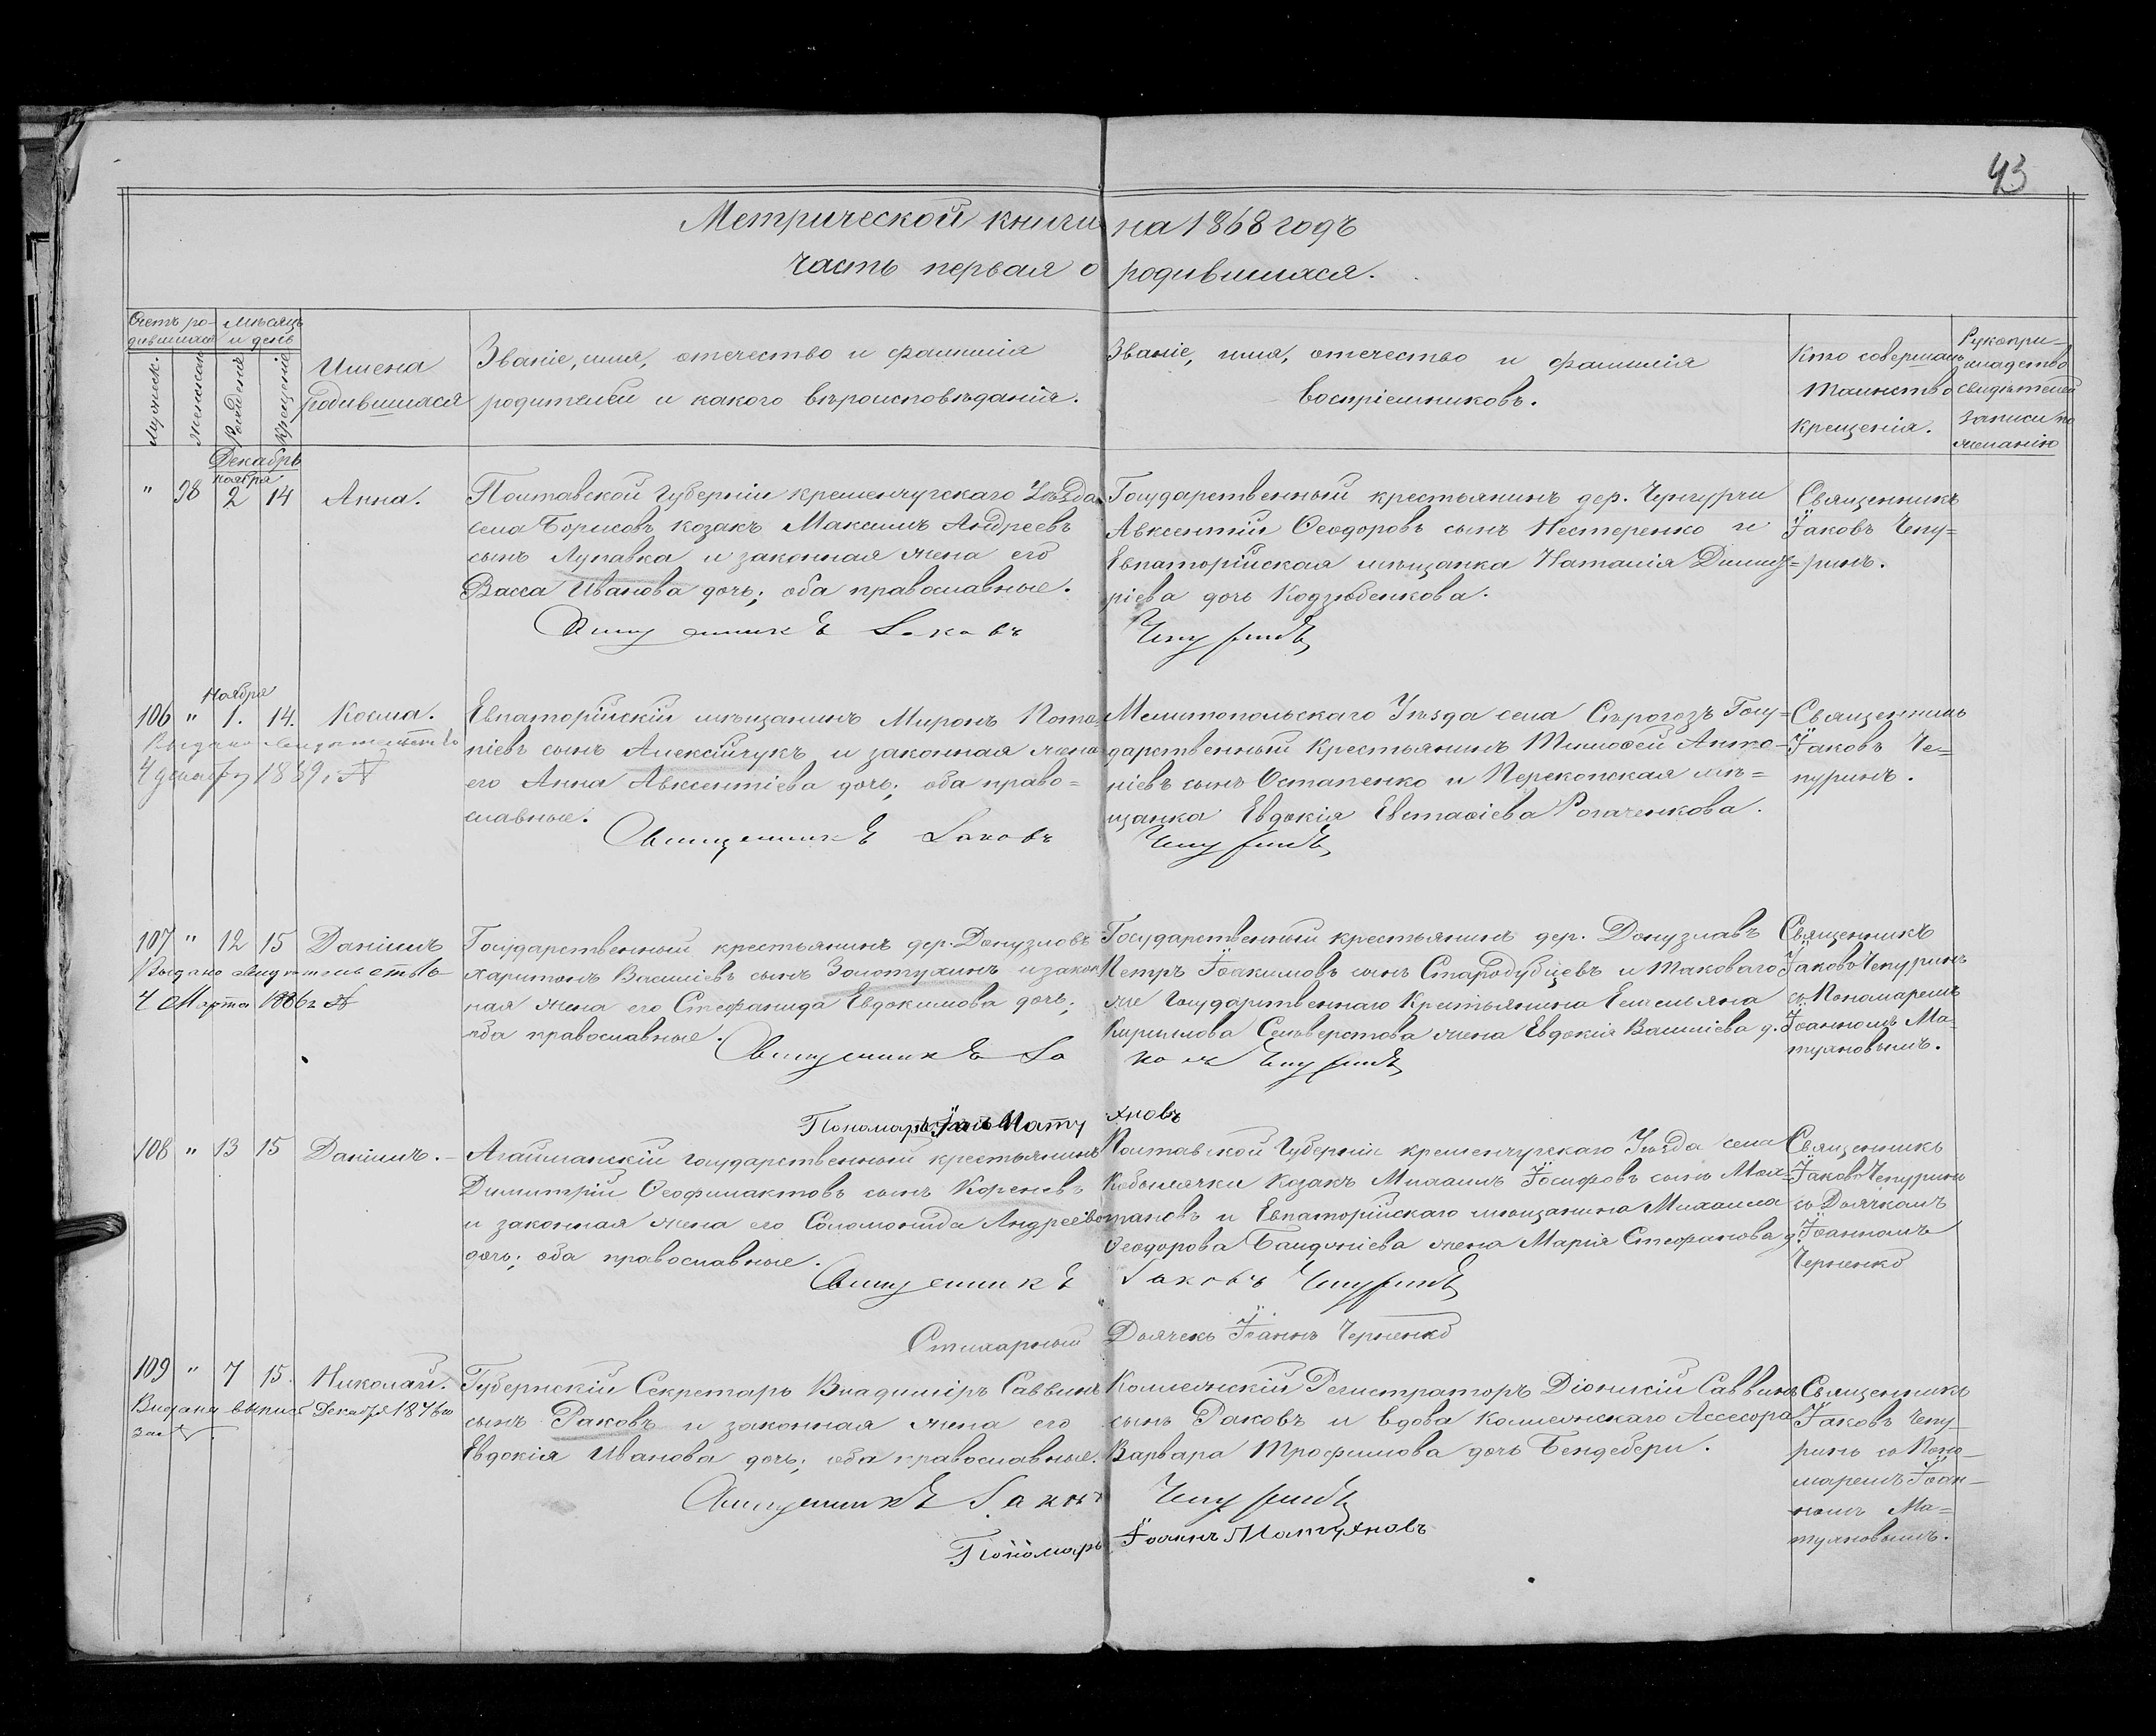 43
Метрической книги на 1868 годъ
часть первая о родившихся.
Счетъ ро-
дившихся
Мужеск.
Женскаго
Мѣсяцъ
и день
Рожденія
Крещенія
Имена
родившихся
Званіе, имя, отечество и фамилія
родителей и какого вѣроисповѣданія.
Званіе, имя, отечество и фамилія
воспріемниковъ.
Кто совершалъ
таинство
крещенія.
Рукопри-
кладство
свидѣтелей
записи по
желанію
Декабрь
ноября
" 98 2 14 Анна.
Полтавской Губерніи кременчугскаго Уѣзда
села Борисовъ козакъ Максимъ Андреевъ
сынъ Лупавка и законная жена его
Васса Иванова дочь; оба православные.
Государственный крестьянинъ дер. Чунгурчи
Авксентій Ѳеодоровъ сынъ Нестеренко и
Евпаторійская мѣщанка Наталія Димит-
ріева дочь Кодзюбенкова.
Священникъ
Іаковъ Чепу=
=ринъ.
Священникъ Іаковъ Чепуринъ
Ноября
106 " 1. 14. Косма.
Выдано свидѣтельство
4 декабря 1889 г.
Евпаторійскій мѣщанинъ Миронъ Пота-
піевъ сынъ Алексійчукъ и законная жена
его Анна Авксентіева дочь; оба право=
славные.
Мелитопольскаго Уѣзда села Сѣрогозъ Госу=
дарственный Крестьянинъ Тимоѳей Анто-
ніевъ сынъ Остапенко и Перекопская мѣ=
щанка Евдокія Евстаѳіева Рогаченкова.
Священникъ
Іаковъ Че=
пуринъ.
Священникъ Іаковъ Чепуринъ
107 " 12 15 Даніилъ
Выдано свидѣтельство
4 Марта 1886 г.
Государственный крестьянинъ дер. Донузлавъ
Харитонъ Василіевъ сынъ Золотухинъ и закон
ная жена его Стефанида Евдокимова дочь;
оба православные.
Государственный крестьянинъ дер. Донузлавъ
Петръ Іоакимовъ сынъ Стародубцевъ и таковаго
же Государственнаго Крестьянина Емельяна
Кириллова Селиверстова жена Евдокія Василіева д.
Священникъ
Іаковъ Чепуринъ
съ Пономаремъ
Іоанномъ Ма-
тухновымъ.
Священникъ Іаковъ Чепуринъ
Пономарь Іоаннъ Матухновъ
108 " 13 15 Даніилъ.
Агайманскій государственный крестьянинъ
Димитрій Ѳеофилактовъ сынъ Кореневъ
и законная жена его Соломонида Андреева
дочь; оба православные.
Полтавской Губерніи кременчугскаго Уѣзда села
Кобылячки Козакъ Михаилъ Іосифовъ сынъ
и Евпаторійскаго мѣщанина Михаила
Ѳеодорова жена Марія Стефанова д.
Священникъ
Іаковъ Чепуринъ
съ Дьячкомъ
Іоанномъ
Черненко
Священникъ Іаковъ Чепуринъ
Стихарный Дьячекъ Іоаннъ Черненко
109 " 7 15. Николай.
Выдана выпись Декабря
за №
Губернскій Секретарь Владиміръ Саввинъ
сынъ Раковъ и законная жена его
Евдокія Иванова дочь; оба православные.
Коллежскій Регистраторъ Діонисій Саввинъ
сынъ Раковъ и вдова Коллежскаго Ассесора
Варвара Трофимова дочь Бендебери.
Священникъ
Іаковъ Чепу-
ринъ со Поно-
маремъ Іоан-
номъ Ма=
тухновымъ.
Священникъ Іаковъ Чепуринъ
Пономарь Іоаннъ Матухновъ